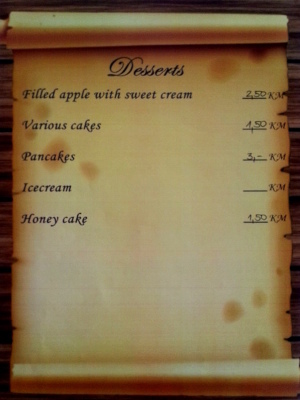 Desserts
Filled apple with sweet cream 2,50 KM
Various cakes 1,50 KM
Pancakes 3,- KM
Icecream ____ KM
Honey cake 1,50 KM